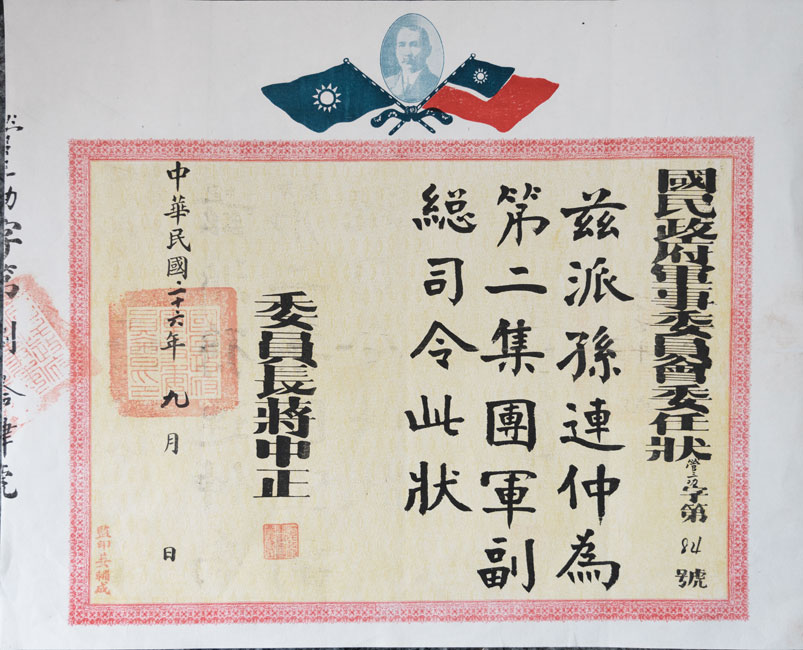 國民政府軍事委員會委任狀
字第84號
兹派孫連仲為
第二集團軍副
總司令此狀
委員長蔣中正
中華民國二十六年九月 日
監印吳稱成
字第捌拾肆號